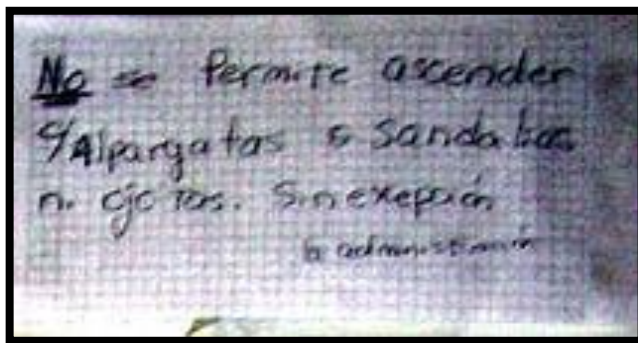 No se Permite ascender
c/Alpargatas o Sandalias
ni ojotas. Sin exepción
la administración